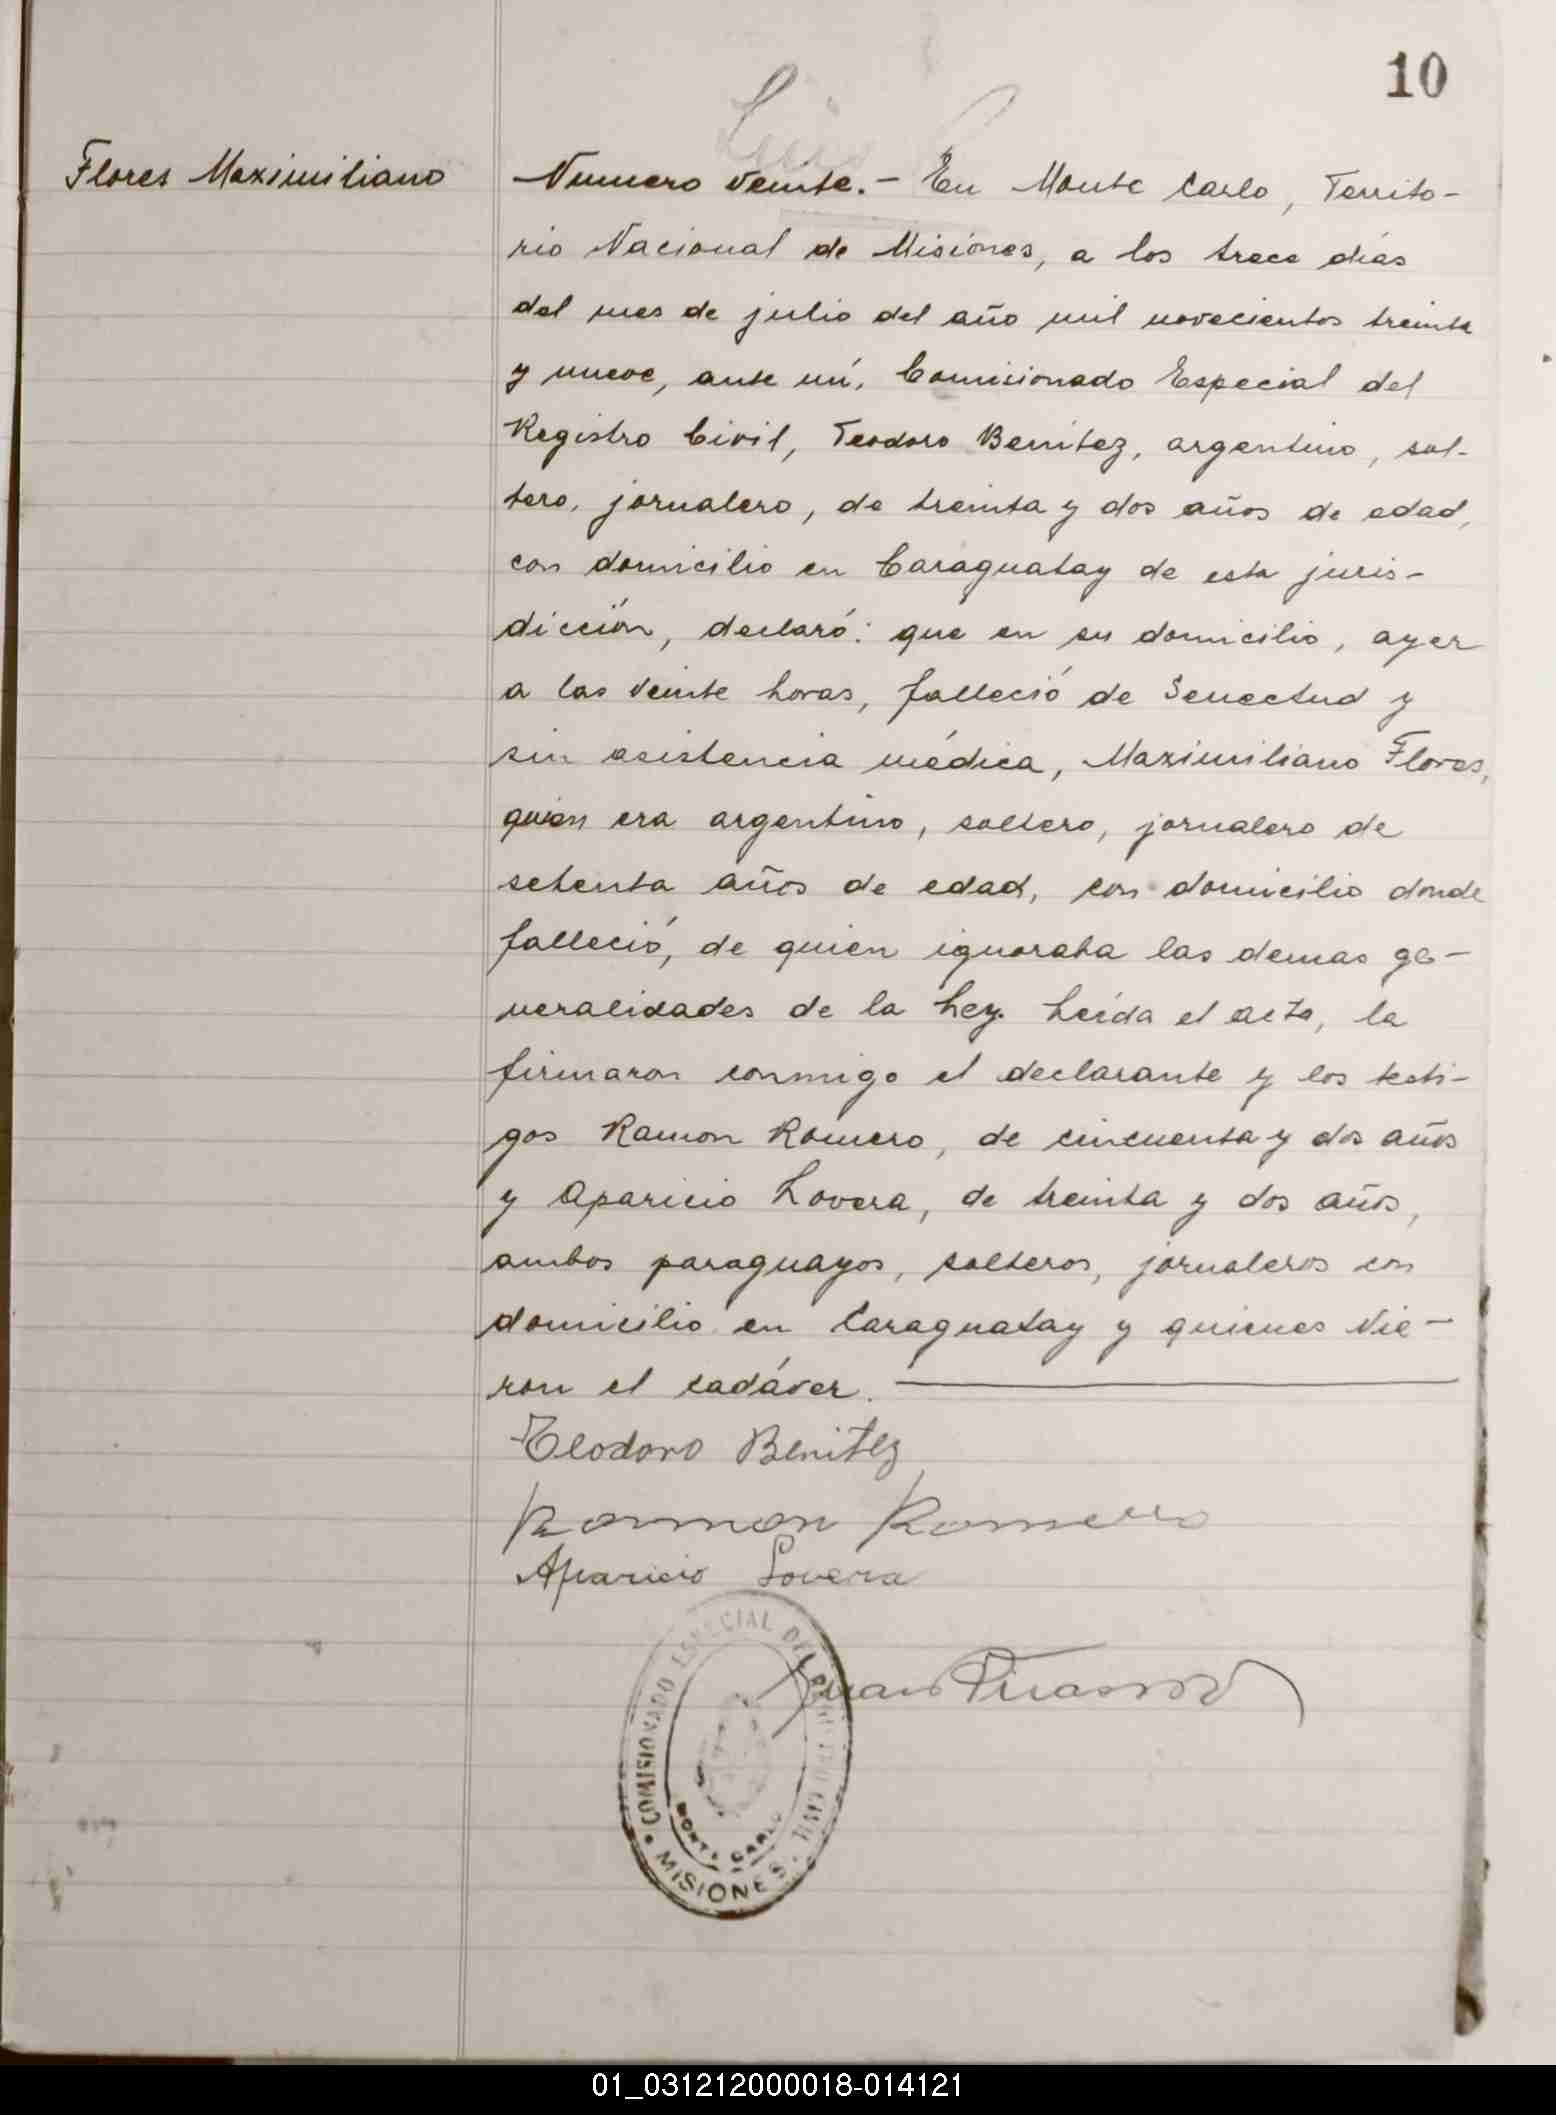 10
Luis
Flores Maximiliano
Numero veinte.- En Monte Carlo, Territo-
rio Nacional de Misiones, a los trece dias
del mes de julio del año mil novecientos treinta
y nueve, ante mí, Comisionado Especial del
Registro Civil, Teodoro Benitez, argentino, sol-
tero, jornalero, de treinta y dos años de edad,
con domicilio en Caraguatay de esta juris-
dicción, declaró: que en su domicilio, ayer
a las veinte horas, falleció de Senectud y
sin asistencia médica, Maximiliano Flores,
quien era argentino, soltero, jornalero de
setenta años de edad, con domicilio donde
falleció, de quien ignoraba las demas ge-
neralidades de la Ley. Leída el acta, la
firmaron conmigo el declarante y los testi-
gos Ramon Romero, de cincuenta y dos años
y Aparicio Lovera, de treinta y dos años,
ambos paraguayos, solteros, jornaleros con
domicilio en Caraguatay y quienes vie-
ron el cadáver.
Teodoro Benitez
Ramon Romero
Aparicio Lovera
Juan
COMISIONADO ESPECIAL DEL
MONTE CARLO
MISIONES
01_031212000018-014121